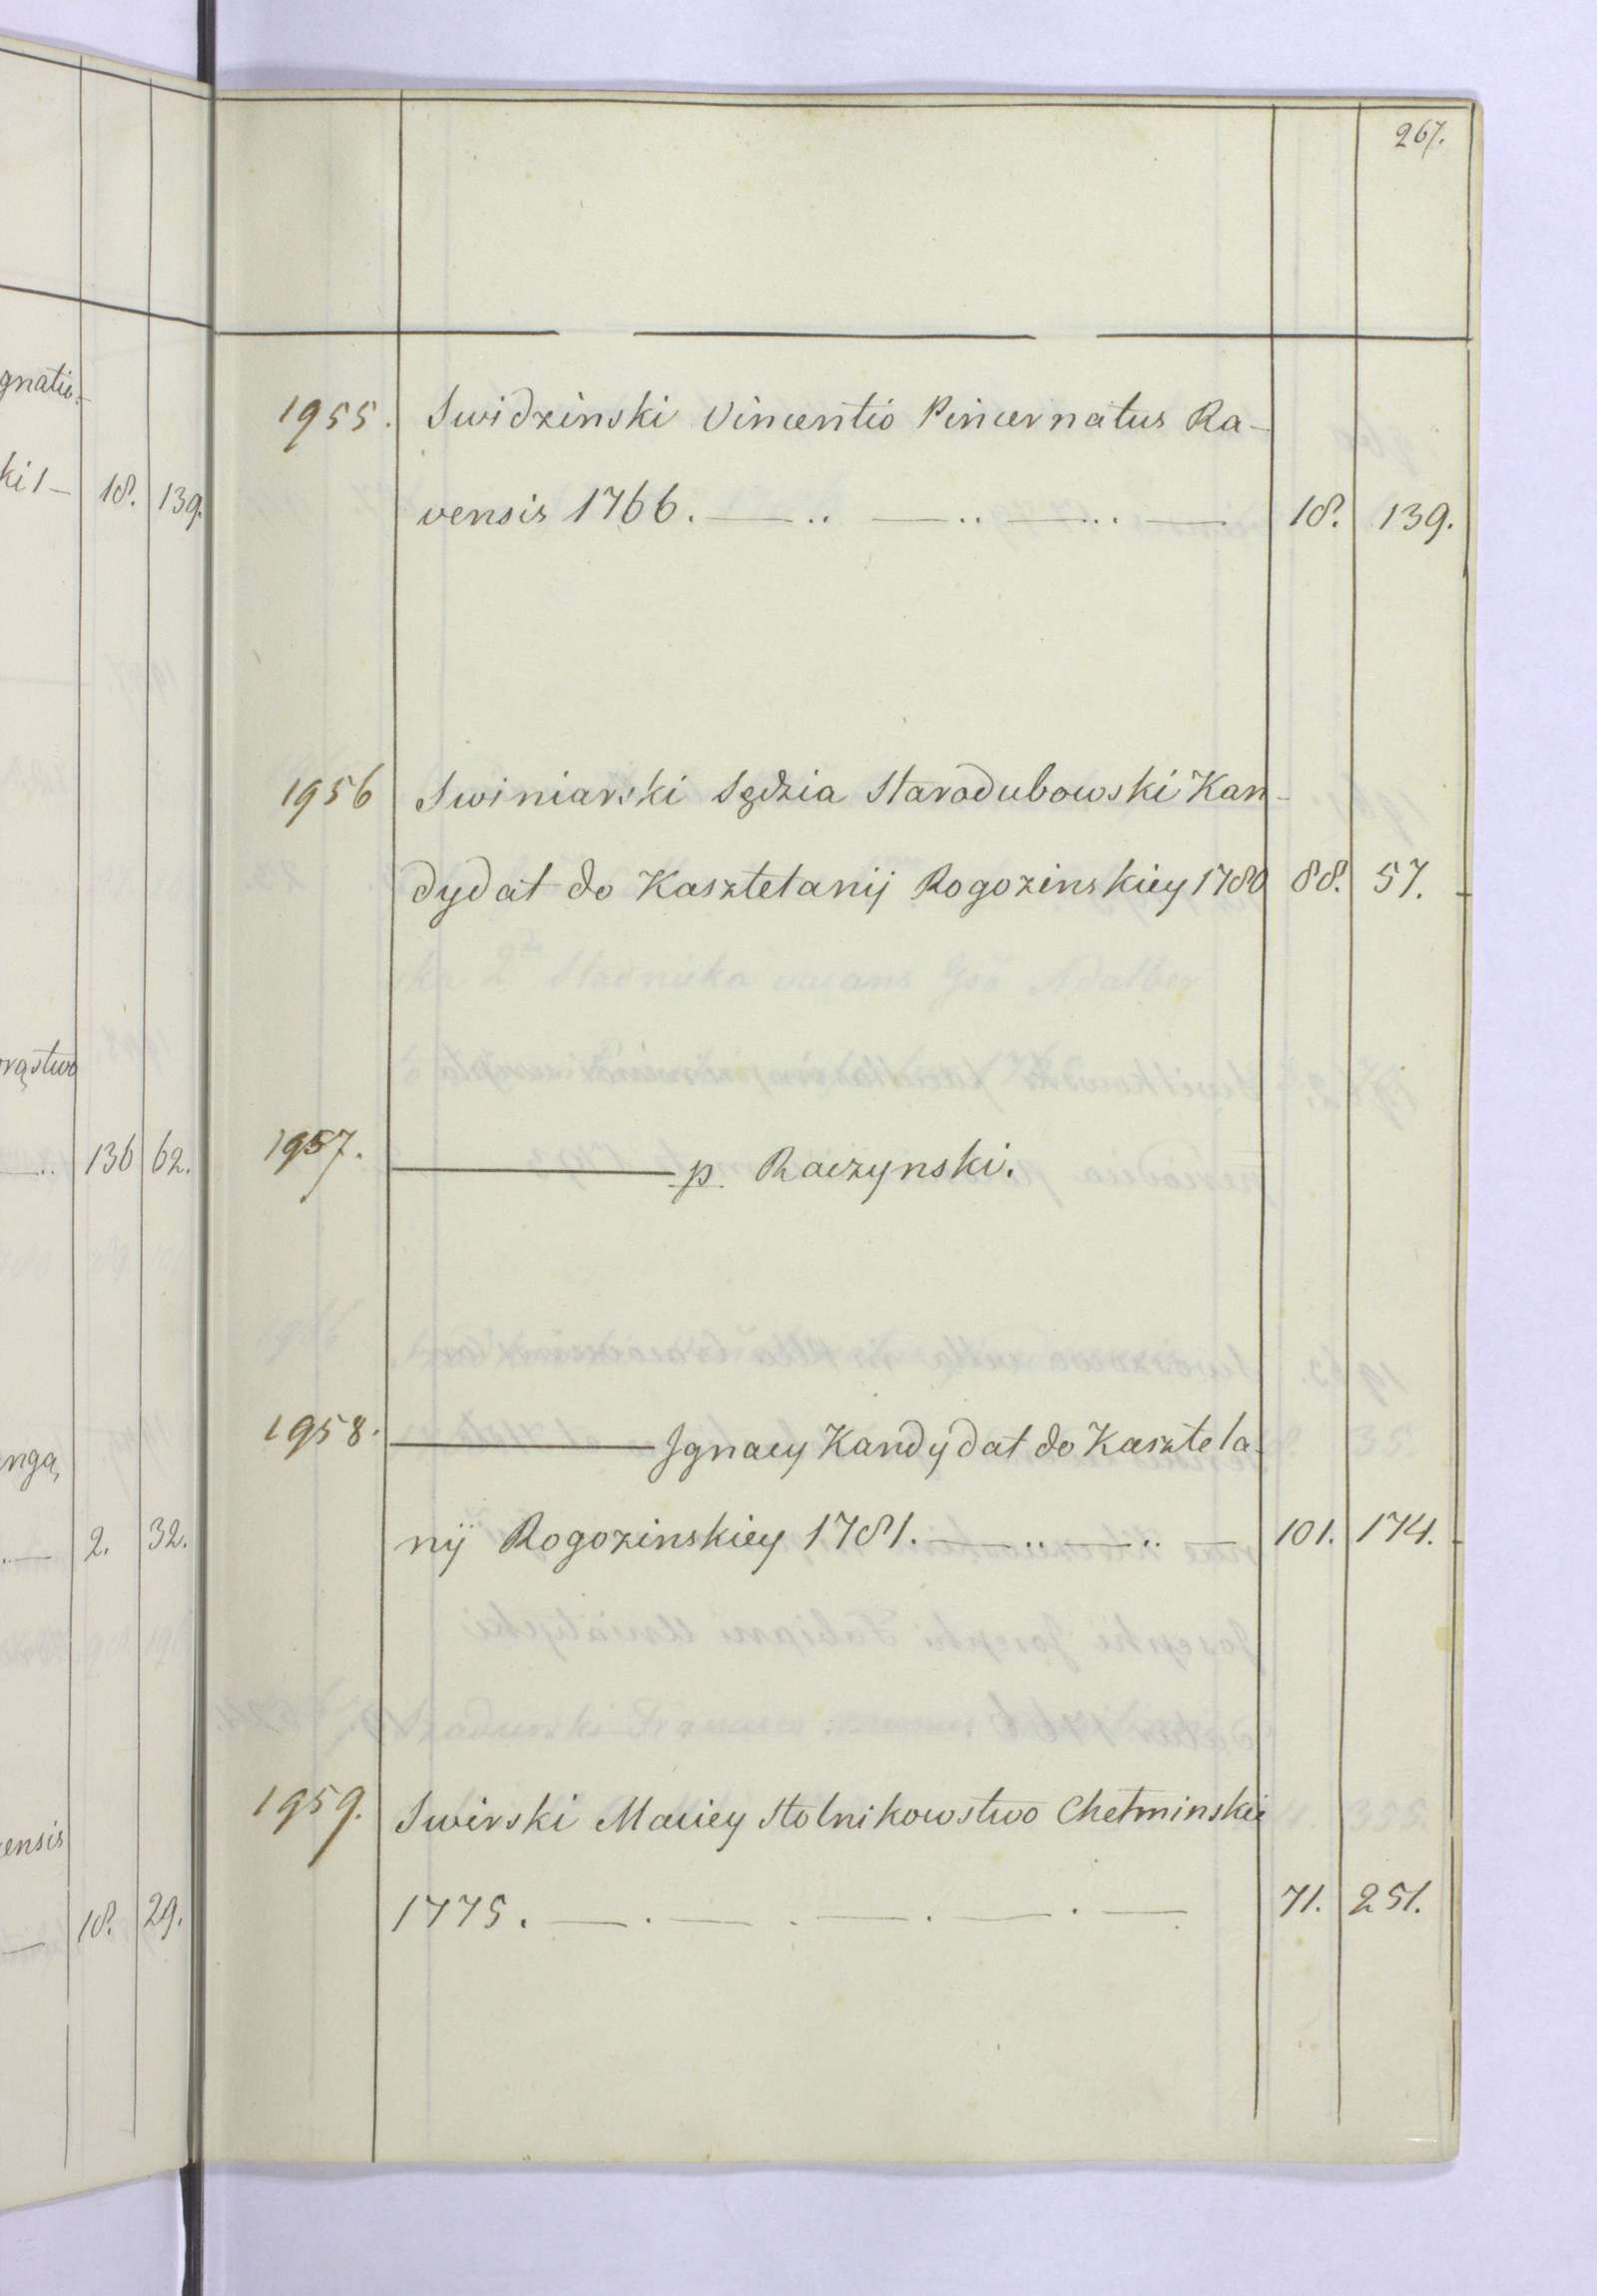 267.
1955. Swidzinski Vincentio Pincernatus Ra-
vensis 1766. 18. 139.
1956 Swiniarski Sędzia Starodubowski Kan-
dydat do Kasztelanij Rogozinskiey 1780 88. 57.
1957. p. Raczynski.
1958. Ignacy Kandydat do Kasztela-
nij Rogozinskiey 1781. 101. 174.
1959. Swirski Maciey Stolnikowstwo Chełminskie
1775. 71. 251.
gnatio-
ki 1 18. 139.
136 62.
2. 32.
ensis
18. 29.